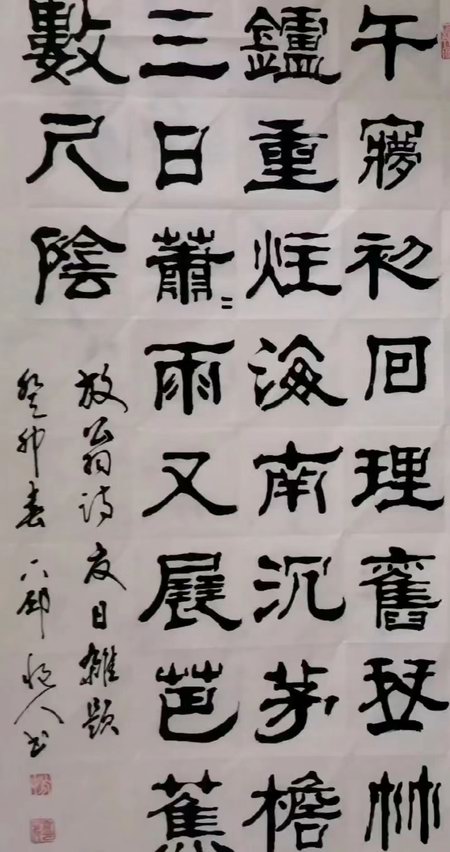 午㝱初回理舊琴竹
鑪重炷海南沉茅檐
三日蕭〻雨又展芭蕉
數尺陰
放翁詩 夏日雜題
癸卯春 人书